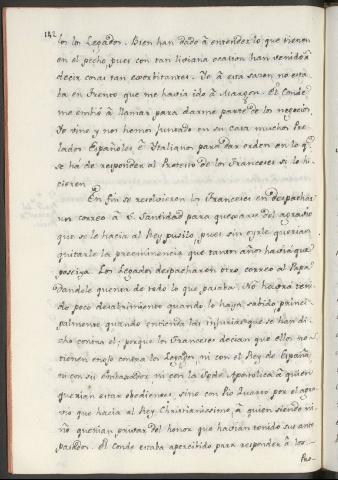 142
los los Legados. Bien han dado à entender lo que tienen
en el pecho, pues con tan liviana ocasion han venido à
decir cosas tan exorbitantes. Yo à esta sazon no esta-
ba en Trento, que me havia ido à Marçon. El Conde
me embió à llamar para darme parte de los negocios.
Yo vino y nos hemos juntado en su casa muchos Pre-
lados Españoles è Italianos para dar orden en lo q.
se ha de responder al Protesto de los Franceses si lo hi-
cieren.
En fin se resolvieron los Franceses en despachar
un correo à S. Santidad para quejarse del agravio
que se le hacia al Rey pusilo, pues sin oyrle querian
quitarle la preeminencia que tantos años havia que
poseiya. Los Legados despacharon otro correo al Papa
dandole quenta de todo lo que pasaba. No havrá teni-
do poco desabrimiento quando lo haya sabido princi-
palmente quando entienda las injurias que se han di-
cho contra el; porque los Franceses decian que ellos no
tienen enojo contra los Legados, ni con el Rey de España,
ni con su Embaxador ni con la Sede Apostolica à quien
querian estar obedientes, sino con Pio Quarto por el agra-
vio que hacia al Rey Christianissimo, à quien siendo ni-
ño querian privar del honor que havian tenido sus ante
pasados. El Conde estaba apercibido para responder à los
Pro-